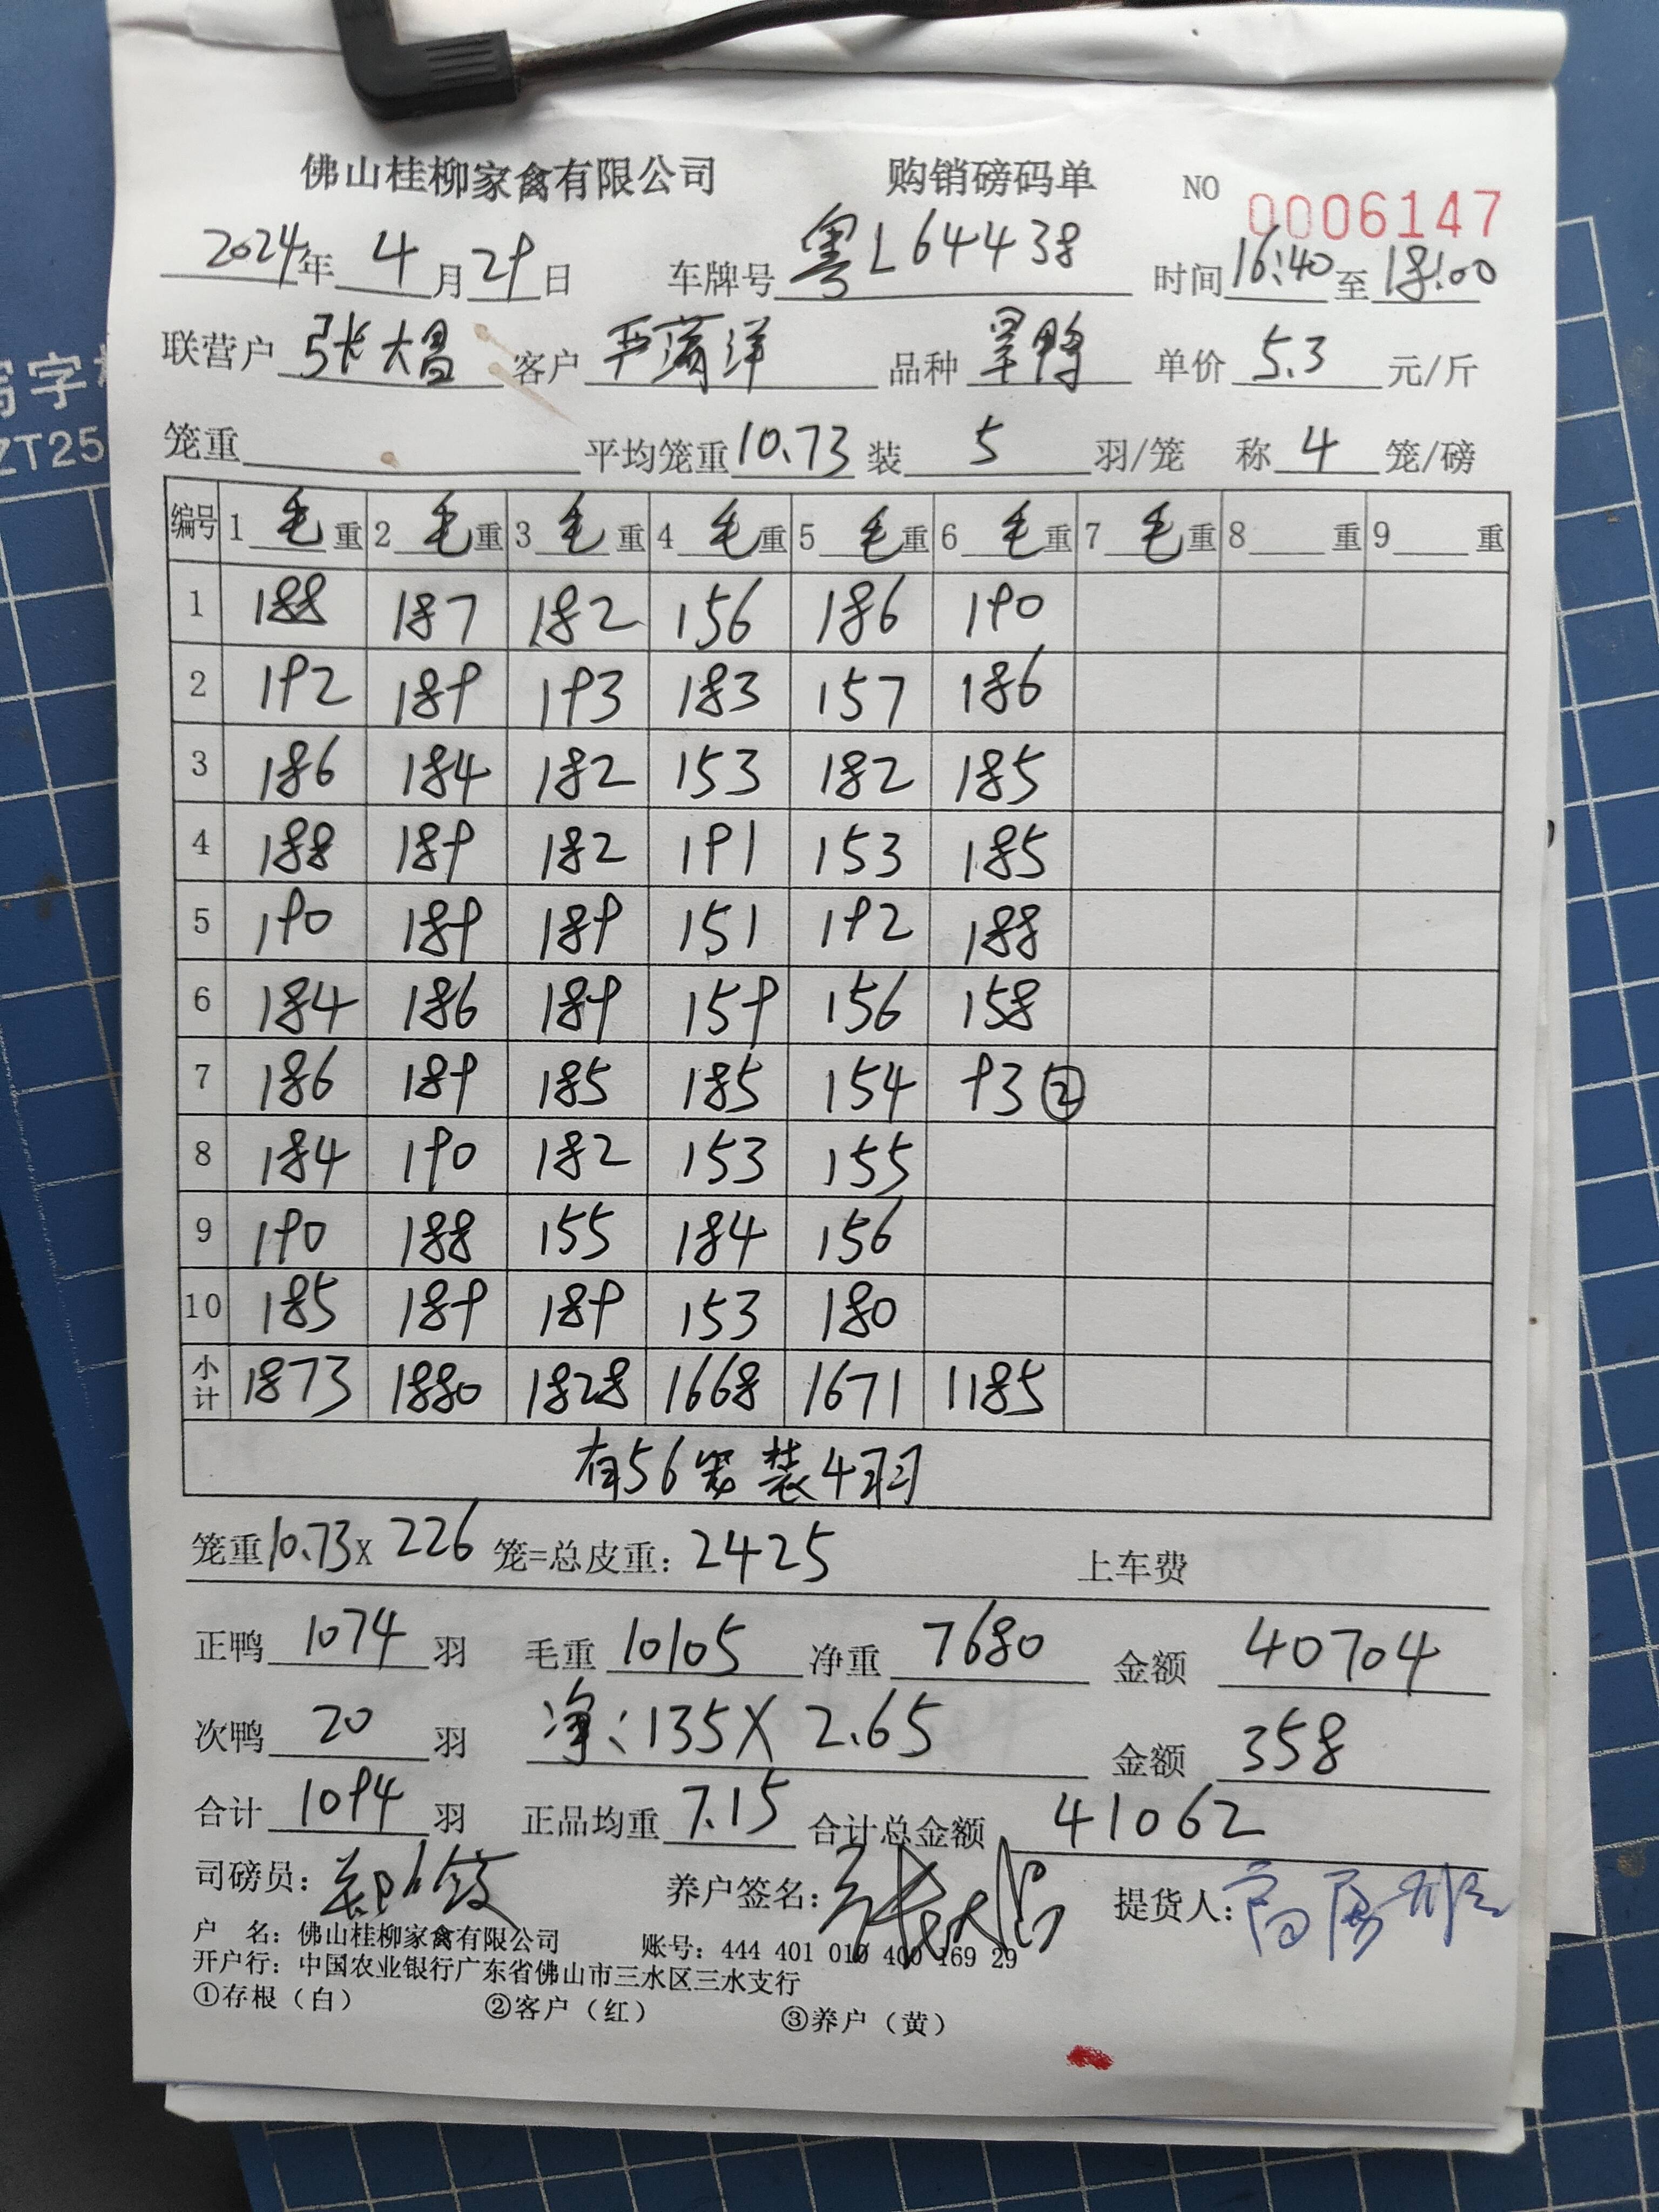 佛山桂柳家禽有限公司 购销磅码单 NO 0006147
2024年 4月29日 车牌号 粤L64438 时间 16:40 至 18:00
联营户 张大昌 客户 严蒲洋 品种 旱鸭 单价 5.3 元/斤
笼重 平均笼重 10.73 装 5 羽/笼 称 4 笼/磅
编号 1 毛重 2 毛重 3 毛重 4 毛重 5 毛重 6 毛重 7 毛重 8 重 9 重
1 188 187 182 156 186 190
2 192 189 193 183 157 186
3 186 184 182 153 182 185
4 188 189 182 191 153 185
5 190 189 189 151 192 188
6 184 186 189 159 156 158
7 186 189 185 185 154 93②
8 184 190 182 153 155
9 190 188 155 184 156
10 185 189 189 153 180
小计 1873 1880 1828 1668 1671 1185
有56笼装4羽
笼重10.73X 226 笼=总皮重：2425 上车费
正鸭 1074 羽 毛重 10105 净重 7680 金额 40704
次鸭 20 羽 净：135X 2.65 金额 358
合计 1094 羽 正品均重 7.15 合计总金额 41062
司磅员： 养户签名：张大昌 提货人：
户 名：佛山桂柳家禽有限公司 账号：444 401 010 400 169 29
开户行：中国农业银行广东省佛山市三水区三水支行
①存根（白） ②客户（红） ③养户（黄）
ZT25